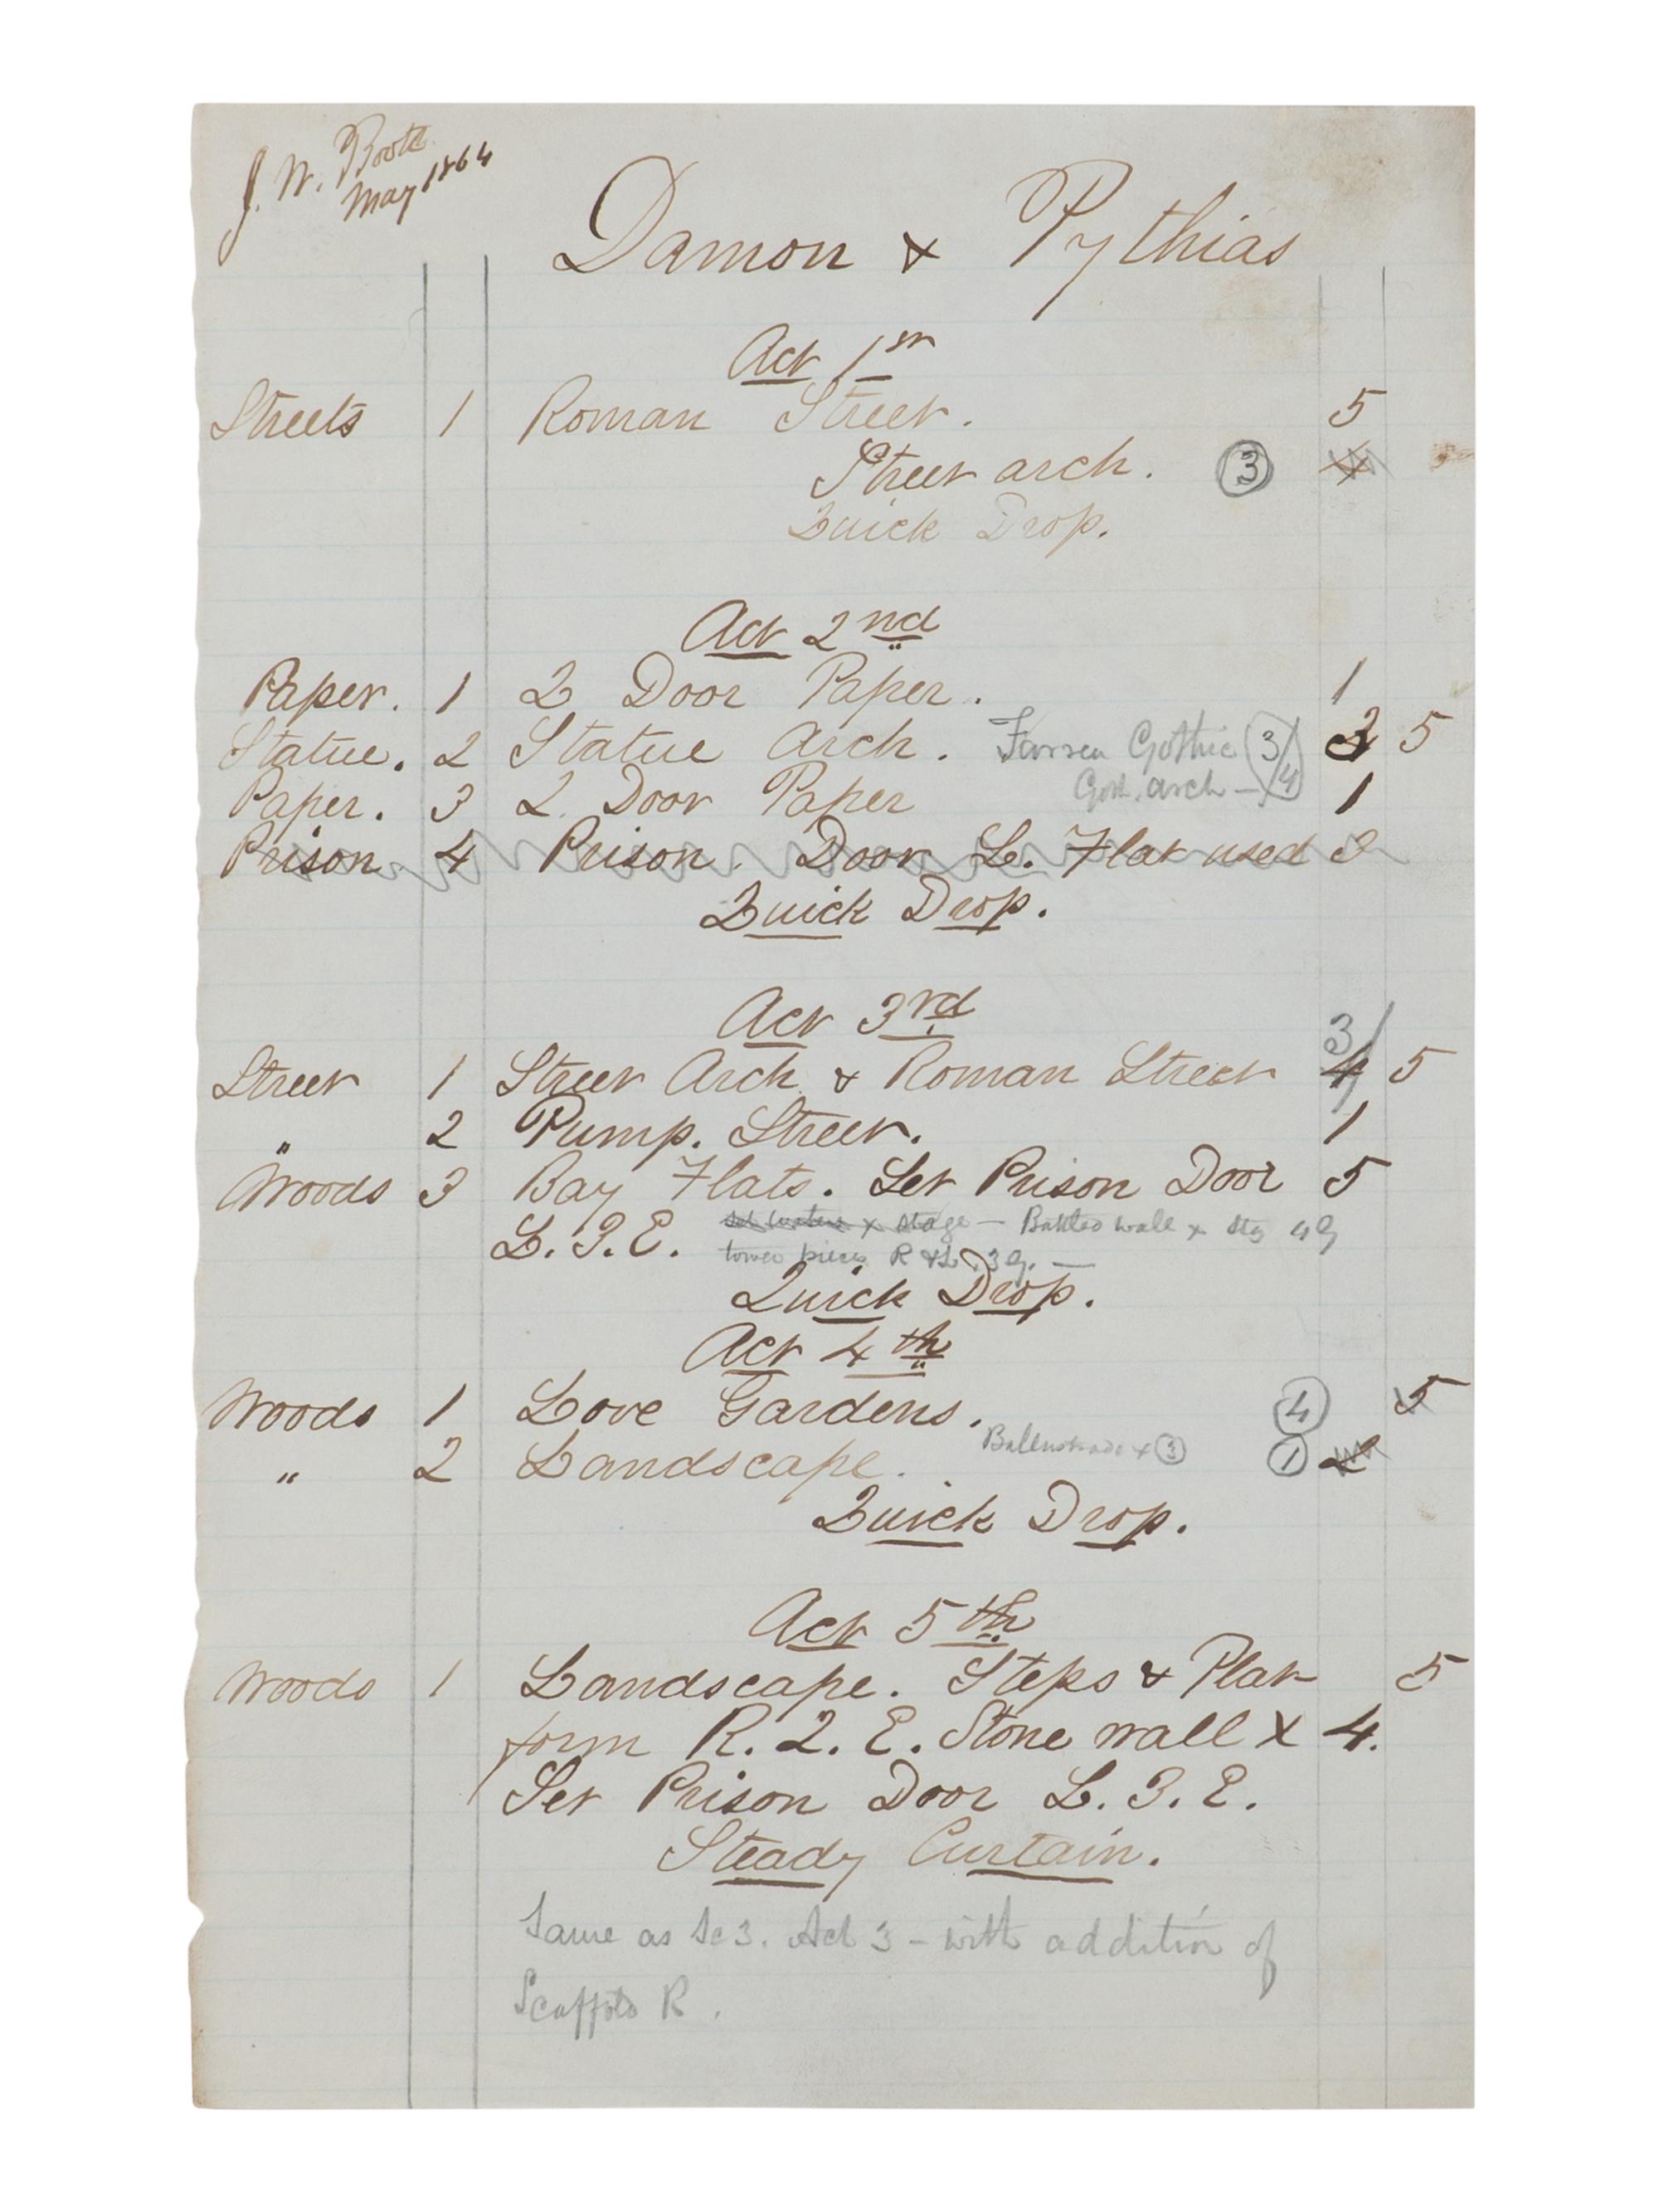 J. W. Booth
May 1864
Damon & Pythias
Act 1st
Streets 1 Roman Street. 5
Street arch. 3 4
Quick Drop.
Act 2nd
Paper. 1 2 Door Paper. 1
Statue. 2 Statue Arch. Gothic 3/4 3 5
Paper. 3 2. Door Paper Goth. arch — 1
Prison 4 Prison. Door L. Flat used 3
Quick Drop.
Act 3rd
3
Street 1 Street Arch & Roman Street 4 5
" 2 Pump. Street. 1
Woods 3 Bay Flats. Set Prison Door 5
L. 3. E. x stage — Battled wall x stg 4 G
tower pieces R & L. 3 G. —
Quick Drop.
Act 4th
Woods 1 Love Gardens. 4 5
" 2 Landscape. Ballustrade x 3 1 2
Quick Drop.
Act 5th
Woods 1 Landscape. Steps & Plat 5
form R. 2. E. Stone wall X 4.
Set Prison Door L. 3. E.
Steady Curtain.
Same as Sc 3. Act 3 – with addition of
Scaffold R.